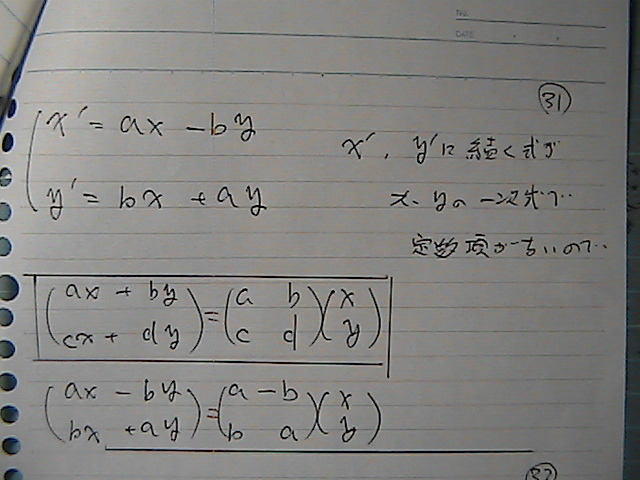 No.
DATE
㉛
x' = ax - by
x', y'に続く式が
y' = bx + ay
x、yの一次式で
定数項がないので
(ax + by
cx + dy) = (a b
c d)(x
y)
(ax - by
bx + ay) = (a -b
b a)(x
y)
㉜